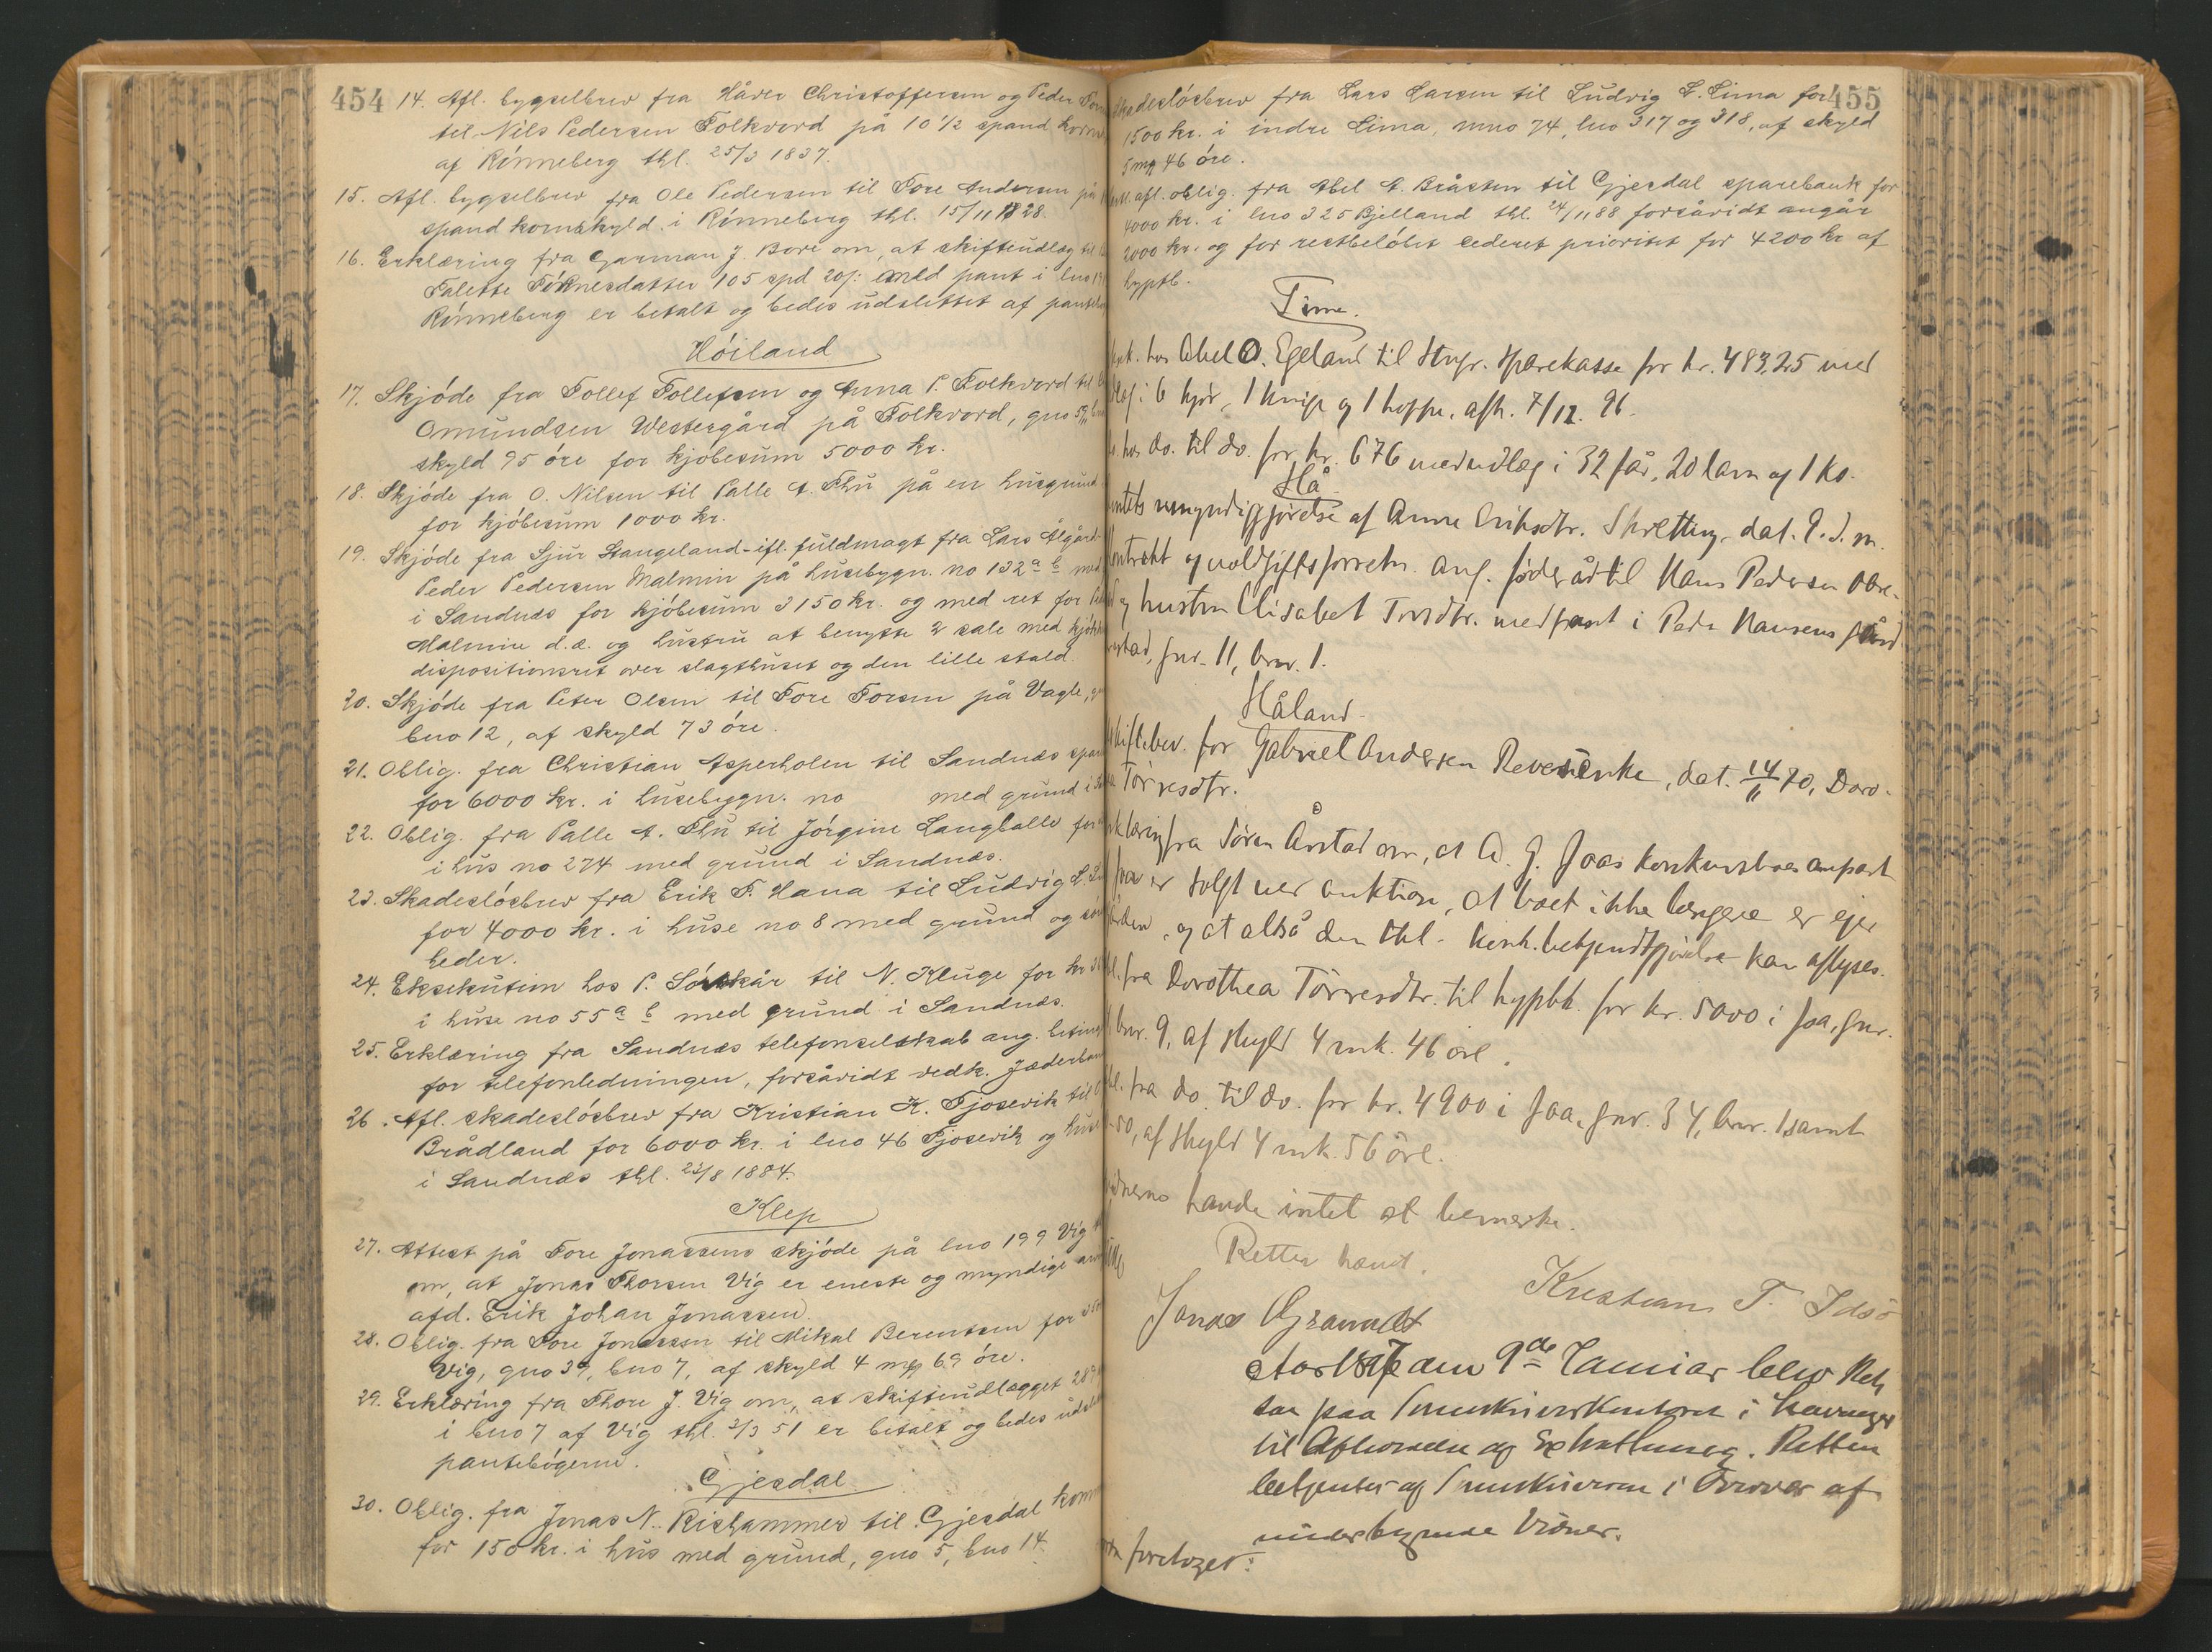 454
14. Afl. bygselbrev fra Håver Christoffersen og Peder
til Nils Pedersen Folkvord på 10 1/2 spand
af Rönneberg thl. 25/3 1837.
15. Afl. bygselbrev fra Ole Pedersen til Tore Andersen på
spand kornskyld i Rönneberg thl. 15/11 1828.
16. Erklæring fra Garman J. Bore om, at skifteudlæg til
105 spd 20 f: med pant i lno
Rönneberg er betalt og bedes udslettet af
Höiland
17. Skjöde fra Tollef Tollefsen og Anna P. Folkvord til
Omundsen Westergård på Folkvord, gno 59,
skyld 95 öre for kjöbesum 5000 kr.
18. Skjöde fra O. Nilsen til Palle A. Thu på en husgrund
for kjöbesum 1000 kr.
19. Skjöde fra Sjur Stangeland ifl. fuldmagt fra Lars Ålgård
Peder Pedersen Malmin på husebygn. no 132 a b med
i Sandnæs for kjöbesum 3150 kr. og med ret for
Malmin d.æ. og hustru at benytte 2 sale med
dispositionsret over slagthuset og den lille stald.
20. Skjöde fra Peter Olsen til Tore Torsen på Vagle,
bno 12, af skyld 73 öre.
21. Oblig. fra Christian Asperholen til Sandnæs
for 6000 kr. i husebygn. no med grund i
22. Oblig. fra Palle A. Thu til Jörgine Langballe for
i hus no 274 med grund i Sandnæs.
23. Skadeslösbrev fra Erik T. Hana til Ludvig L.
for 4000 kr. i huse no 8 med grund og
heder.
24. Eksekution hos P. Sörskår til N. Kluge for kr
i huse no 55 a b med grund i Sandnæs.
25. Erklæring fra Sandnæs telefonselskab ang.
for telefonledningen, forsåvidt vedk. Jæderban
26. Afl. skadeslösbrev fra Kristian K. Tjosevik til
Brådland for 6000 kr. i lno 46 Tjosevik og huse
i Sandnæs thl. 23/8 1884.
Klep
27. Attest på Tore Jonassens skjöde på lno 199 Vig
om, at Jonas Thorsen Vig er eneste og myndige
afd. Erik Johan Jonassen.
28. Oblig. fra Tore Jonassen til Mikal Berentsen for
Vig, gno 39, bno 7, af skyld 4 mk 69 öre.
29. Erklæring fra Thore J. Vig om, at skifteudlægget
i bno 7 af Vig thl. 2/3 51 er betalt og bedes
pantebögerne.
Gjesdal
30. Oblig. fra Jonas N. Rishammer til Gjesdal
for 150 kr. i hus med grund, gno 5, bno 14.
455
skadeslösbrev fra Lars Larsen til Ludvig L. Lima for
1500 kr. i indre Lima, mno 74, lno 317 og 318, af skyld
5 mk 46 öre.
afl. oblig. fra Abel A. Bråsten til Gjesdal sparebank for
4000 kr. i lno 325 Bjelland thl. 24/11 88 forsåvidt angår
2000 kr. og for restbelöbet cederet prioritet for 4200 kr af
hyptb.
Time.
hos Abel O. Egeland til Stvgr. Sparekasse for kr. 483,25 med
i 6 kjör, 1 kvige og 1 hoppe. afh. 7/12. 96.
hos do. til do. for kr. 676 med udlæg i 32 får, 20 lam og 1 ko.
Hå
umyndiggjörelse af Anne Eriksdtr. Skretting, dat. 9. d. m.
kontrakt og voldgiftsforretn. ang. föderåd til Hans Pedersen Obre-
og hustru Elisabet Torsdtr. med pant i Peder Hansens gård
gnr. 11, bnr. 1.
Håland.
skiftebev. for Gabriel Andersen Revesenke, dat. 14/11 70, Doro-
Törresdtr.
erklæring fra Sören Årstad om, at A. J. Joas konkursboes anpart
er solgt ved auktion, at boet ikke længere er ejer
og at altså den thl. konk. bekjendtgjörelse kan aflyses.
fra Dorothea Törresdtr. til hyptbk. for kr. 5000 i Joa, gnr.
bnr. 9, af skyld 4 mk. 46 öre.
fra do. til do. for kr. 4900 i Joa, gnr. 34, bnr. 1 samt
50, af skyld 4 mk. 56 öre.
havde intet at bemærke.
Retten hævet.
Kristian T. Idsö
Jonas Gramstt
Aar 1897 den 9de Januar blev Ret
sat paa Sorenskriverkontoret i Stavanger
til Afhörelse og Exhattering. Retten
betjentes af Sorenskriveren i Overvær af
underskrevne Vidner.
foretoges: